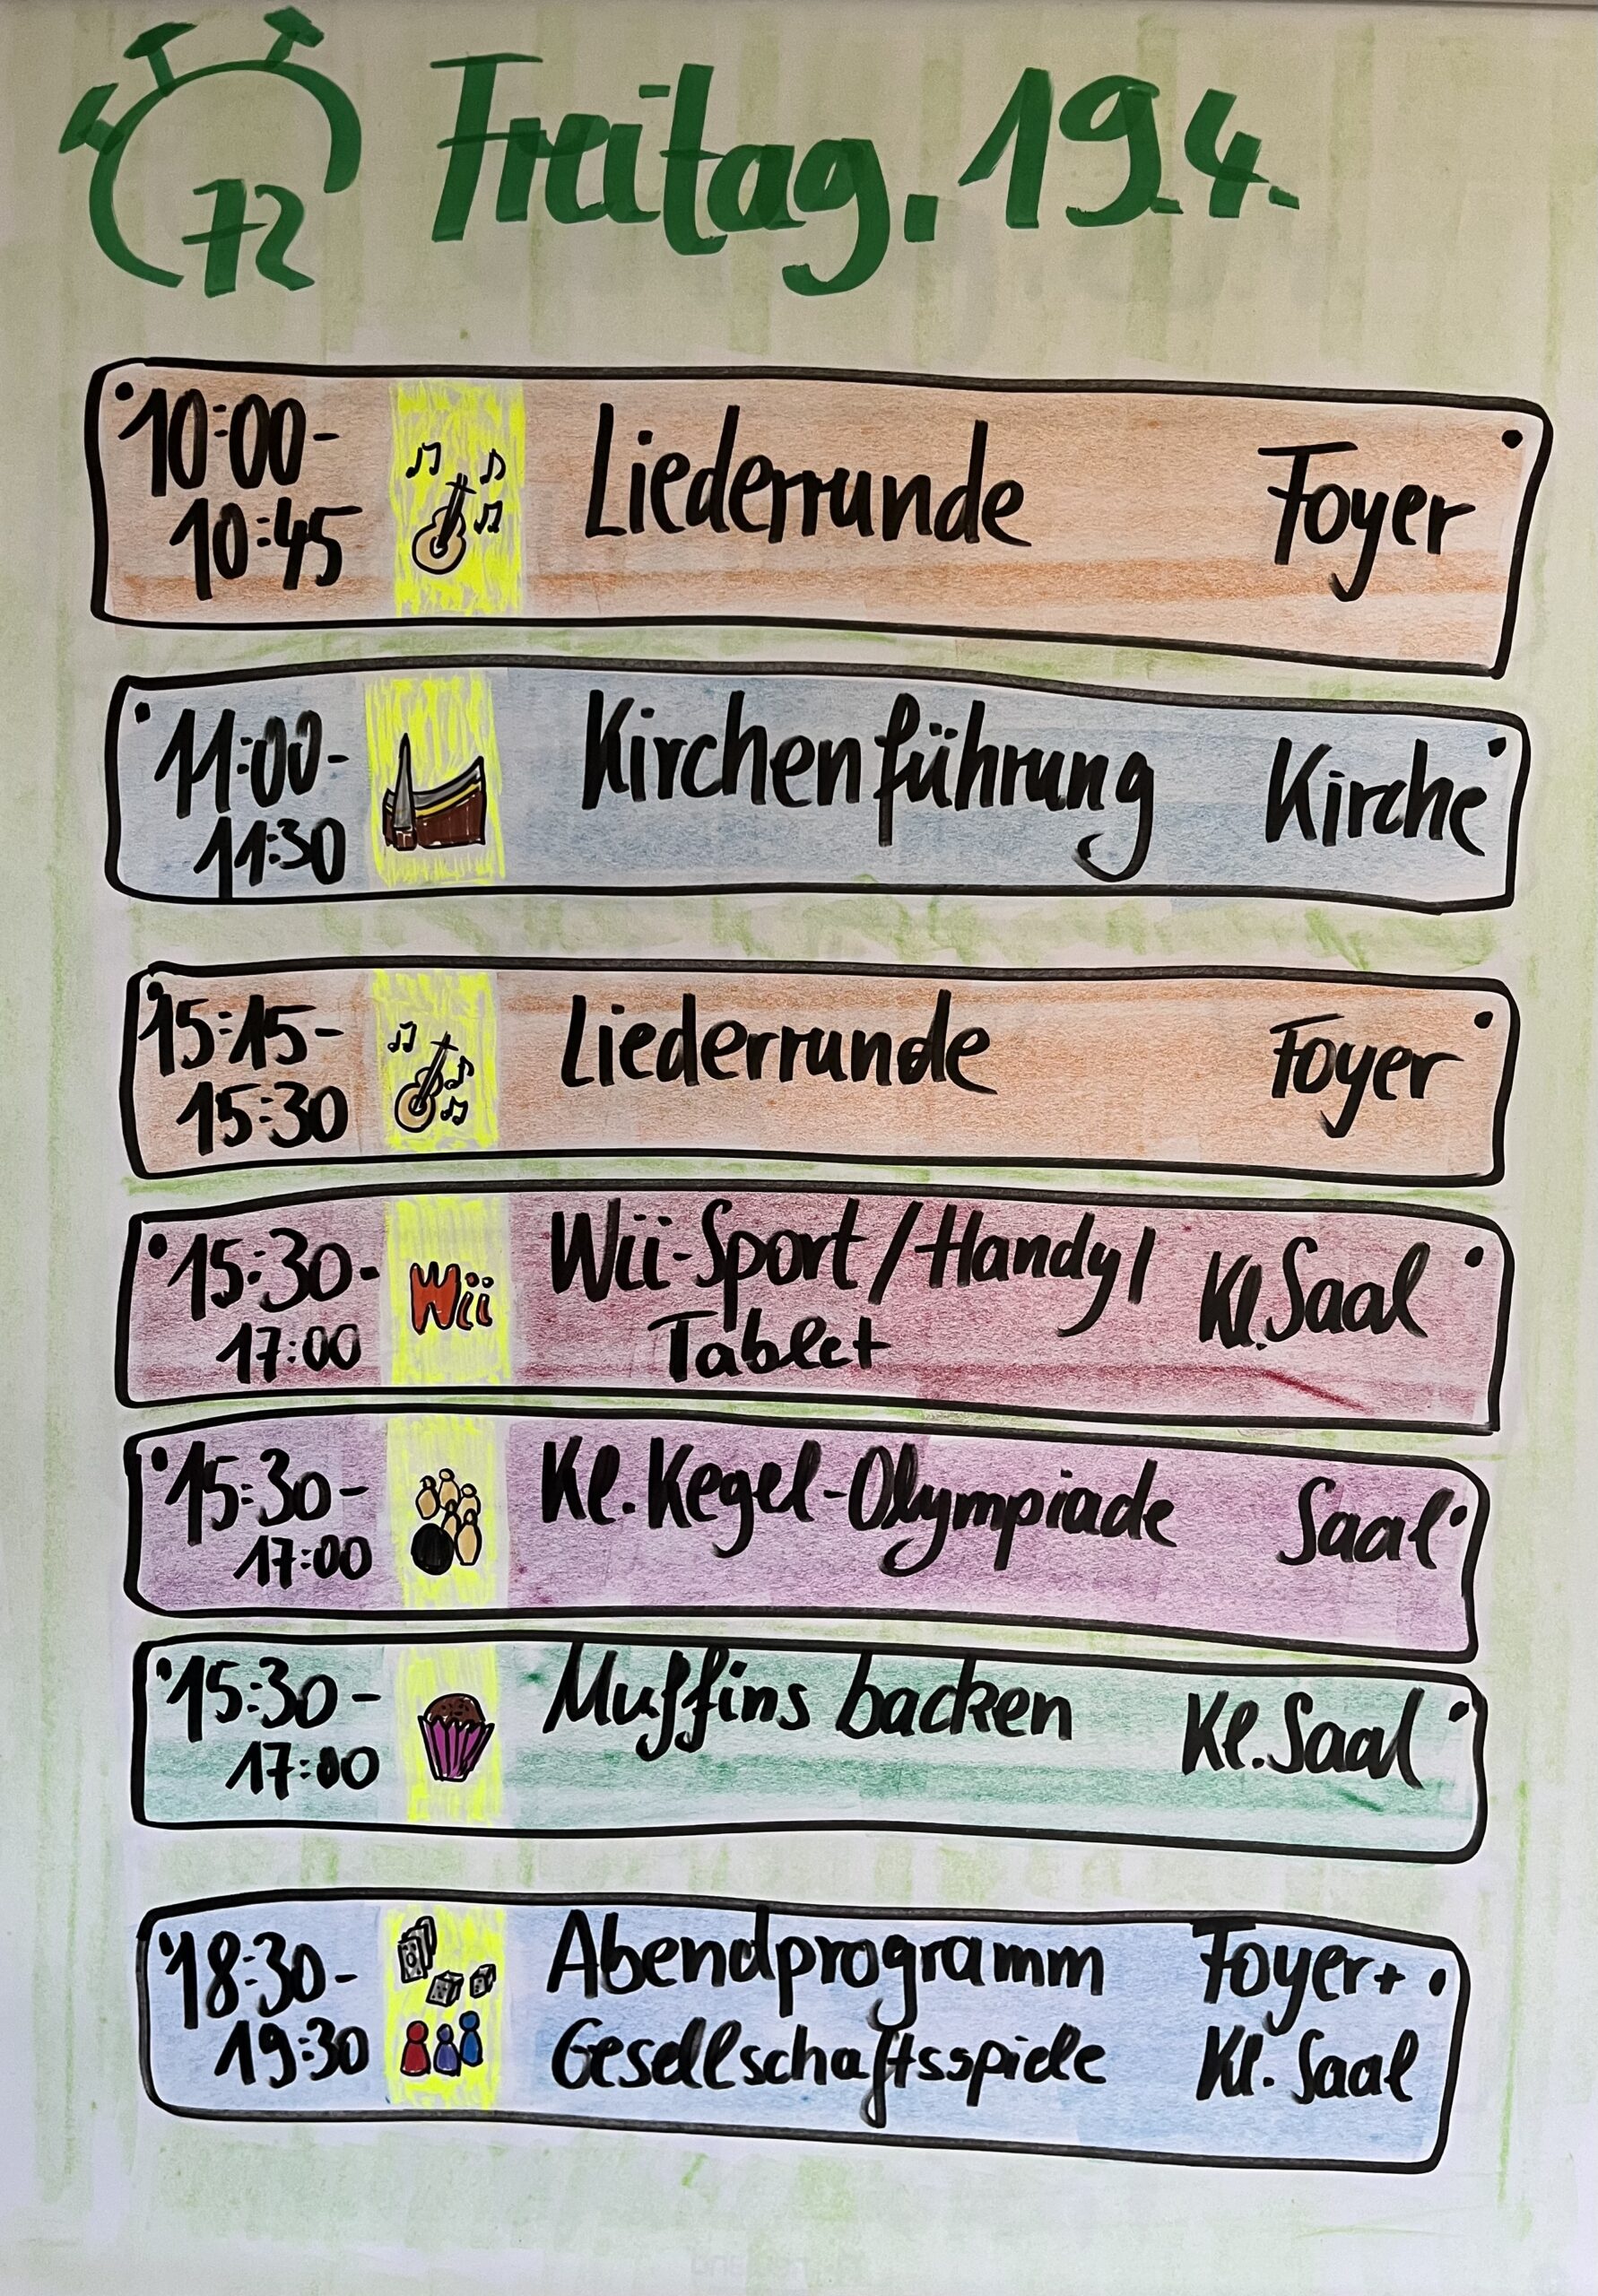 72 Freitag, 19.4.
10:00- Liederrunde Foyer
10:45
11:00- Kirchenführung Kirche
11:30
15:15- Liederrunde Foyer
15:30
15:30- Wii Wii-Sport/Handy/ Kl. Saal
17:00 Tablet
15:30- Kl. Kegel-Olympiade Saal
17:00
15:30- Muffins backen Kl. Saal
17:00
18:30- Abendprogramm Foyer+
19:30 Gesellschaftsspiele Kl. Saal